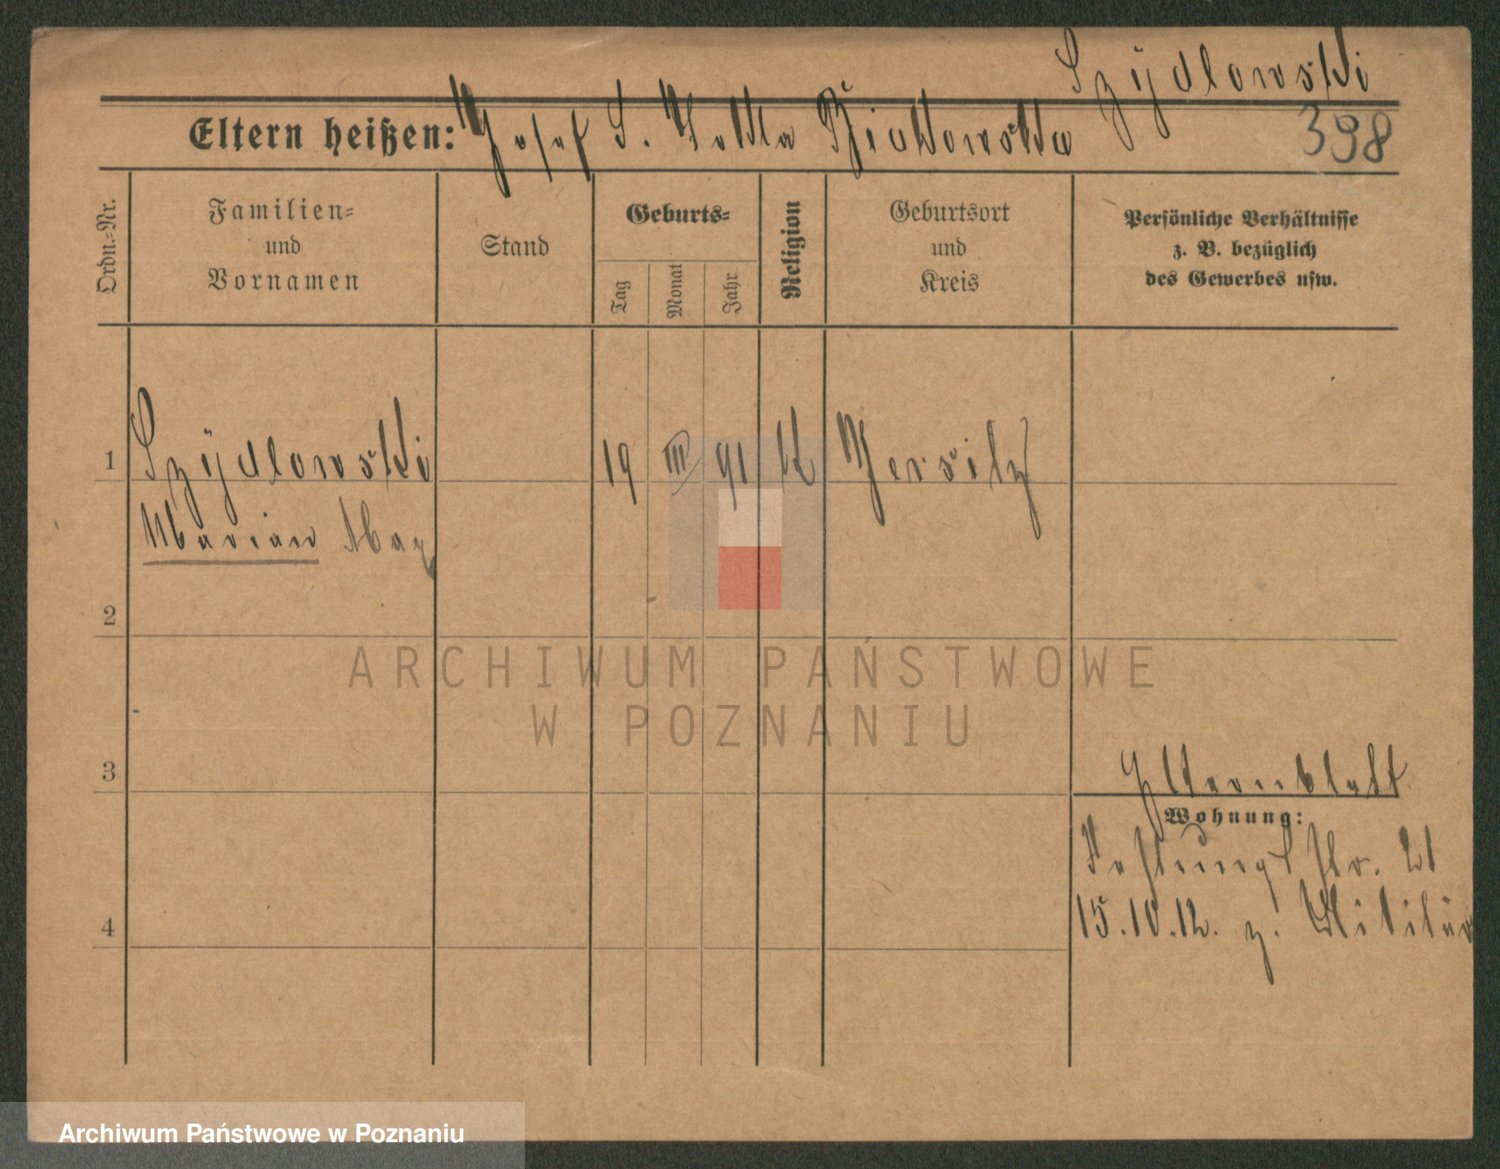 Szÿdlowski
Eltern heißen: Josef S.
398
Ordn.-Nr.
Familien-
und
Vornamen
Stand
Geburts-
Tag
Monat
Jahr
Religion
Geburtsort
und
Kreis
Persönliche Verhältnisse
z. B. bezüglich
des Gewerbes usw.
1
Szÿdlowski
19 III 91 Jersitz
Marian Max
2
ARCHIWUM PAŃSTWOWE
W POZNANIU
3
Elternblatt
Wohnung:
Festungsstr. 21
15.10.12. z. Militär
4
Archiwum Państwowe w Poznaniu